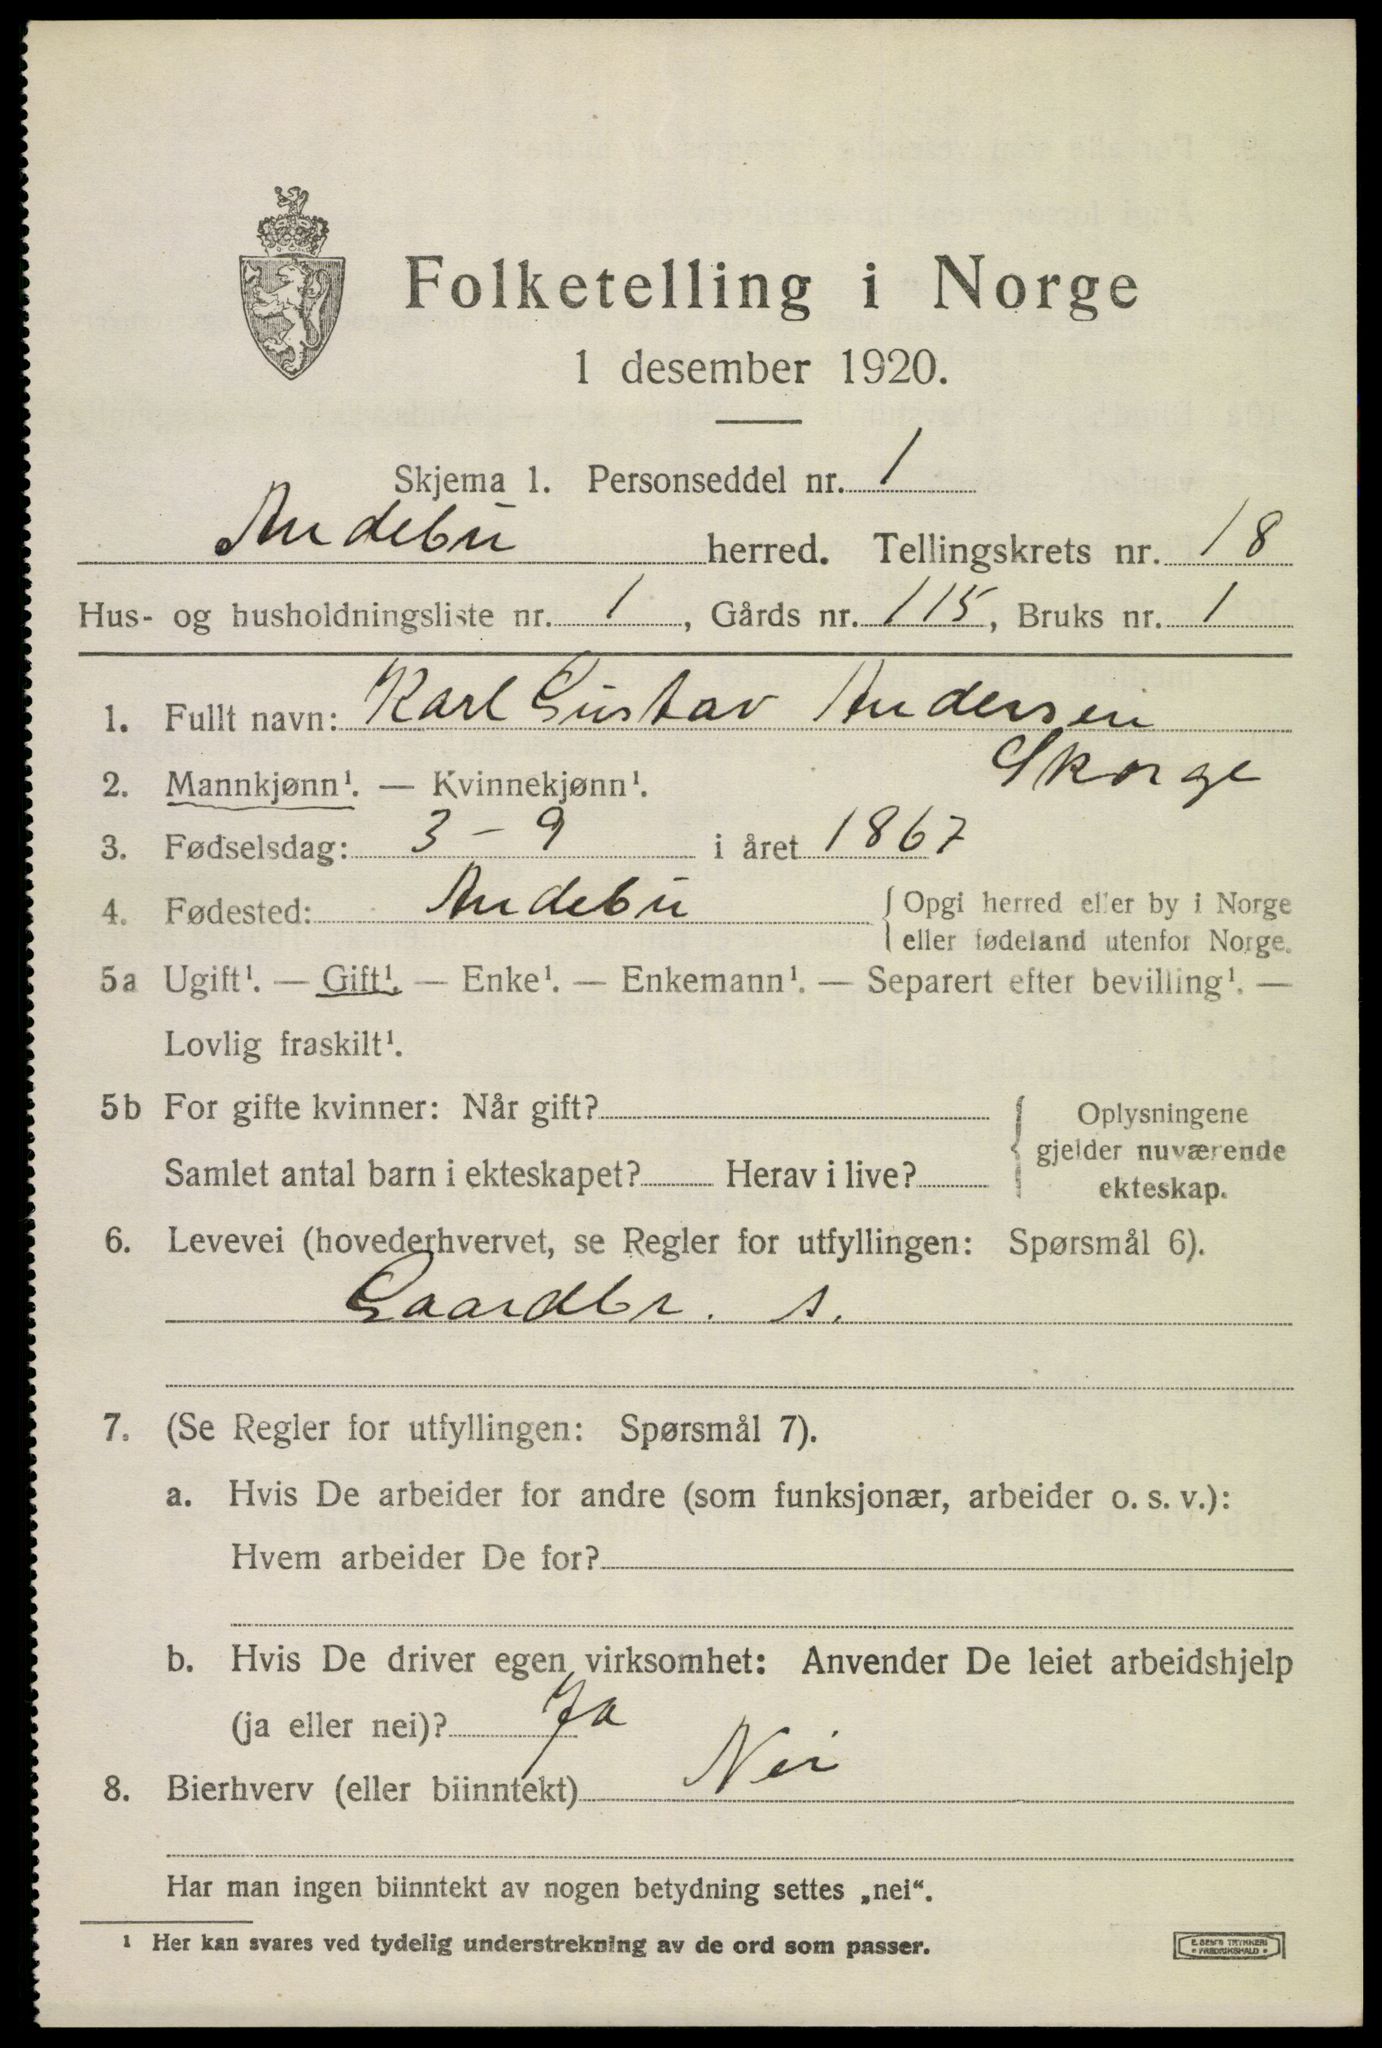 Folketelling i Norge
1 desember 1920.
Skjema 1. Personseddel nr. 1
Andebu herred. Tellingskrets nr. 18
Hus- og husholdningsliste nr. 1, Gårds nr. 115, Bruks nr. 1
1. Fullt navn: Karl Gustav Andersen
Skorge
2. Mannkjønn¹. — Kvinnekjønn¹.
3. Fødselsdag: 3 – 9 i året 1867
4. Fødested: Andebu { Opgi herred eller by i Norge
eller fødeland utenfor Norge.
5a Ugift¹. — Gift¹. — Enke¹. — Enkemann¹. — Separert efter bevilling¹. —
Lovlig fraskilt¹.
5b For gifte kvinner: Når gift?
Samlet antal barn i ekteskapet? Herav i live?
{ Oplysningene
gjelder nuværende
ekteskap.
6. Levevei (hovederhvervet, se Regler for utfyllingen: Spørsmål 6).
Gaardbr. s.
7. (Se Regler for utfyllingen: Spørsmål 7).
a. Hvis De arbeider for andre (som funksjonær, arbeider o. s. v.):
Hvem arbeider De for?
b. Hvis De driver egen virksomhet: Anvender De leiet arbeidshjelp
(ja eller nei)? Ja
8. Bierhverv (eller biinntekt) Nei
Har man ingen biinntekt av nogen betydning settes „nei“.
¹ Her kan svares ved tydelig understrekning av de ord som passer.
E. SEM'S TRYKKERI
• FREDRIKSHALD •